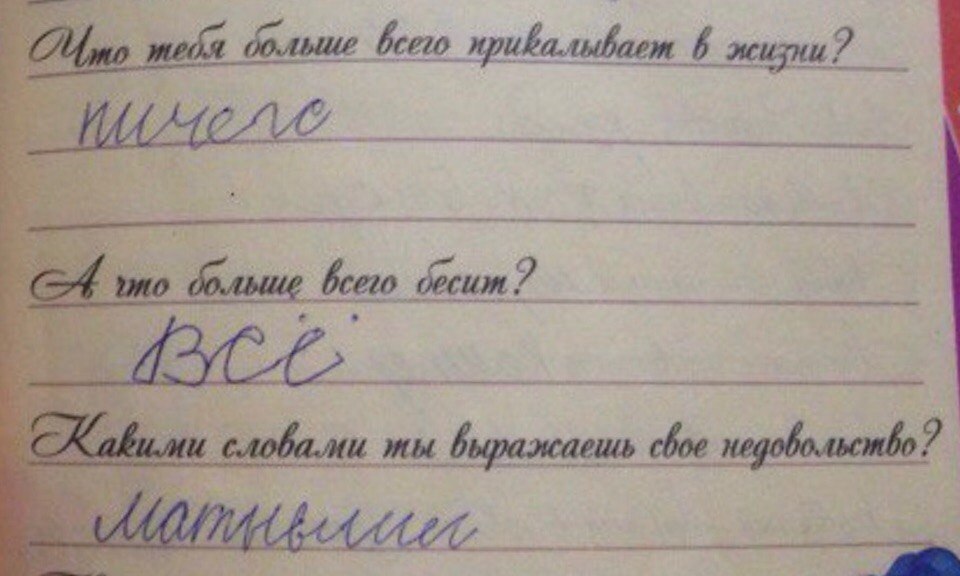 Что тебя больше всего прикалывает в жизни?
ничего
А что больше всего бесит?
всё
Какими словами ты выражаешь свое недовольство?
матными